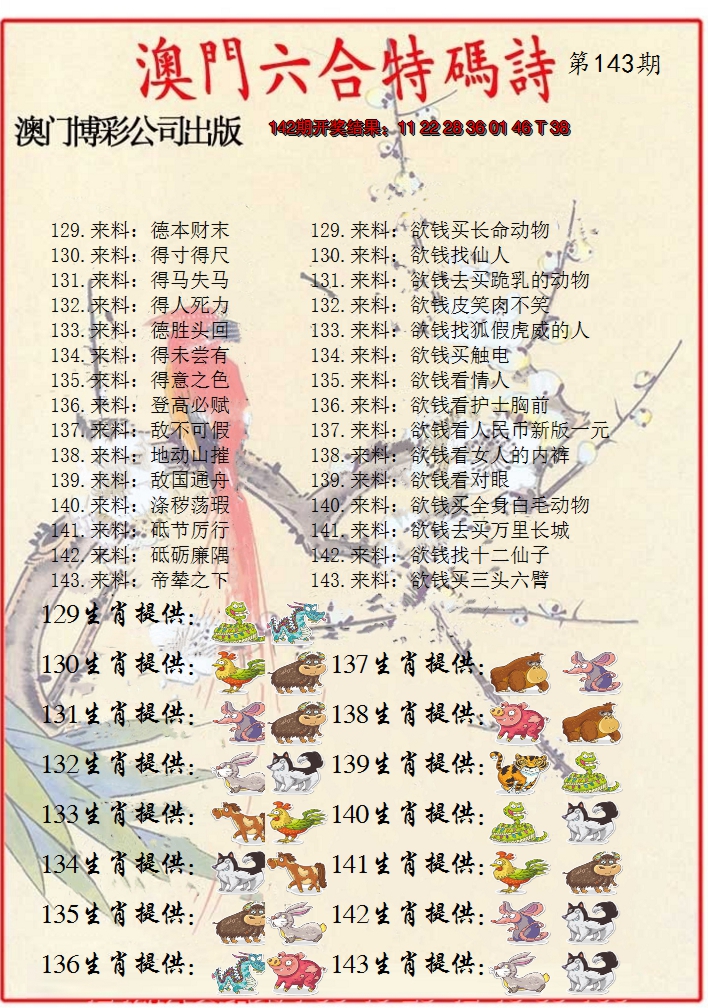 澳門六合特碼詩 第143期
澳门博彩公司出版 142期开奖结果：11 22 28 36 01 46 T 38
129.来料：德本财末 129.来料：欲钱买长命动物
130.来料：得寸得尺 130.来料：欲钱找仙人
131.来料：得马失马 131.来料：欲钱去买跪乳的动物
132.来料：得人死力 132.来料：欲钱皮笑肉不笑
133.来料：德胜头回 133.来料：欲钱找狐假虎威的人
134.来料：得未尝有 134.来料：欲钱买触电
135.来料：得意之色 135.来料：欲钱看情人
136.来料：登高必赋 136.来料：欲钱看护士胸前
137.来料：敌不可假 137.来料：欲钱看人民币新版一元
138.来料：地动山摧 138.来料：欲钱看女人的内裤
139.来料：敌国通舟 139.来料：欲钱看对眼
140.来料：涤秽荡瑕 140.来料：欲钱买全身白毛动物
141.来料：砥节厉行 141.来料：欲钱去买万里长城
142.来料：砥砺廉隅 142.来料：欲钱找十二仙子
143.来料：帝辇之下 143.来料：欲钱买三头六臂
129生肖提供：
130生肖提供： 137生肖提供：
131生肖提供： 138生肖提供：
132生肖提供： 139生肖提供：
133生肖提供： 140生肖提供：
134生肖提供： 141生肖提供：
135生肖提供： 142生肖提供：
136生肖提供： 143生肖提供：